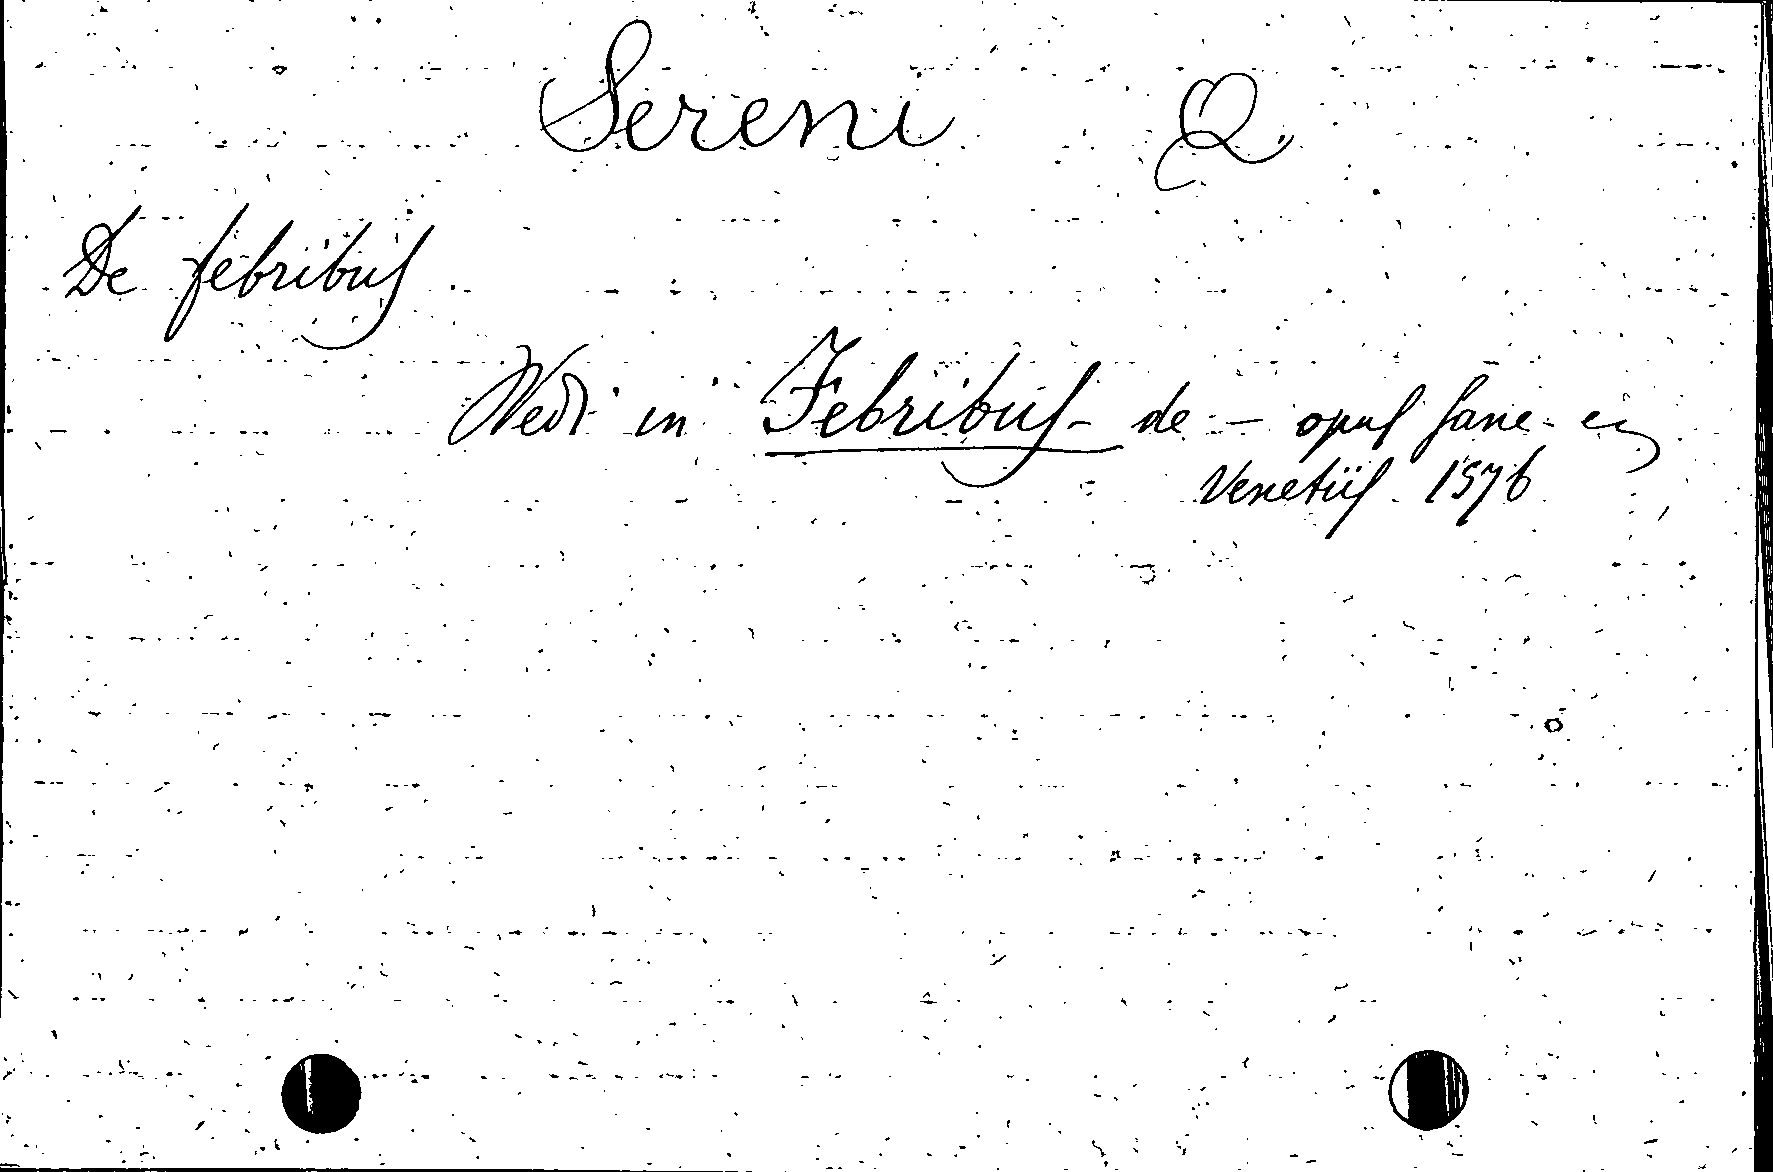 Sereni Q.
De febribus
Vedi in Febribus - de - opus sane - ec
Venetiis 1576